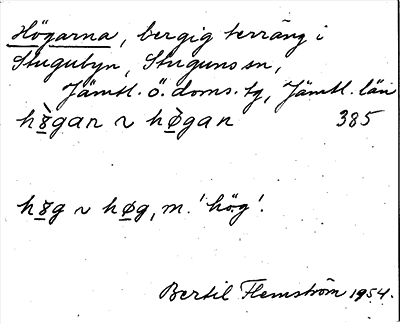 Högarna, bergig terräng i
Stugubyn, Stuguns sn,
Jämtl. ö. doms. tg, Jämtl. län
hø̀gan ~ hø̀gan 385
høg ~ høg, m. 'hög'.
Bertil Flemström 1954.